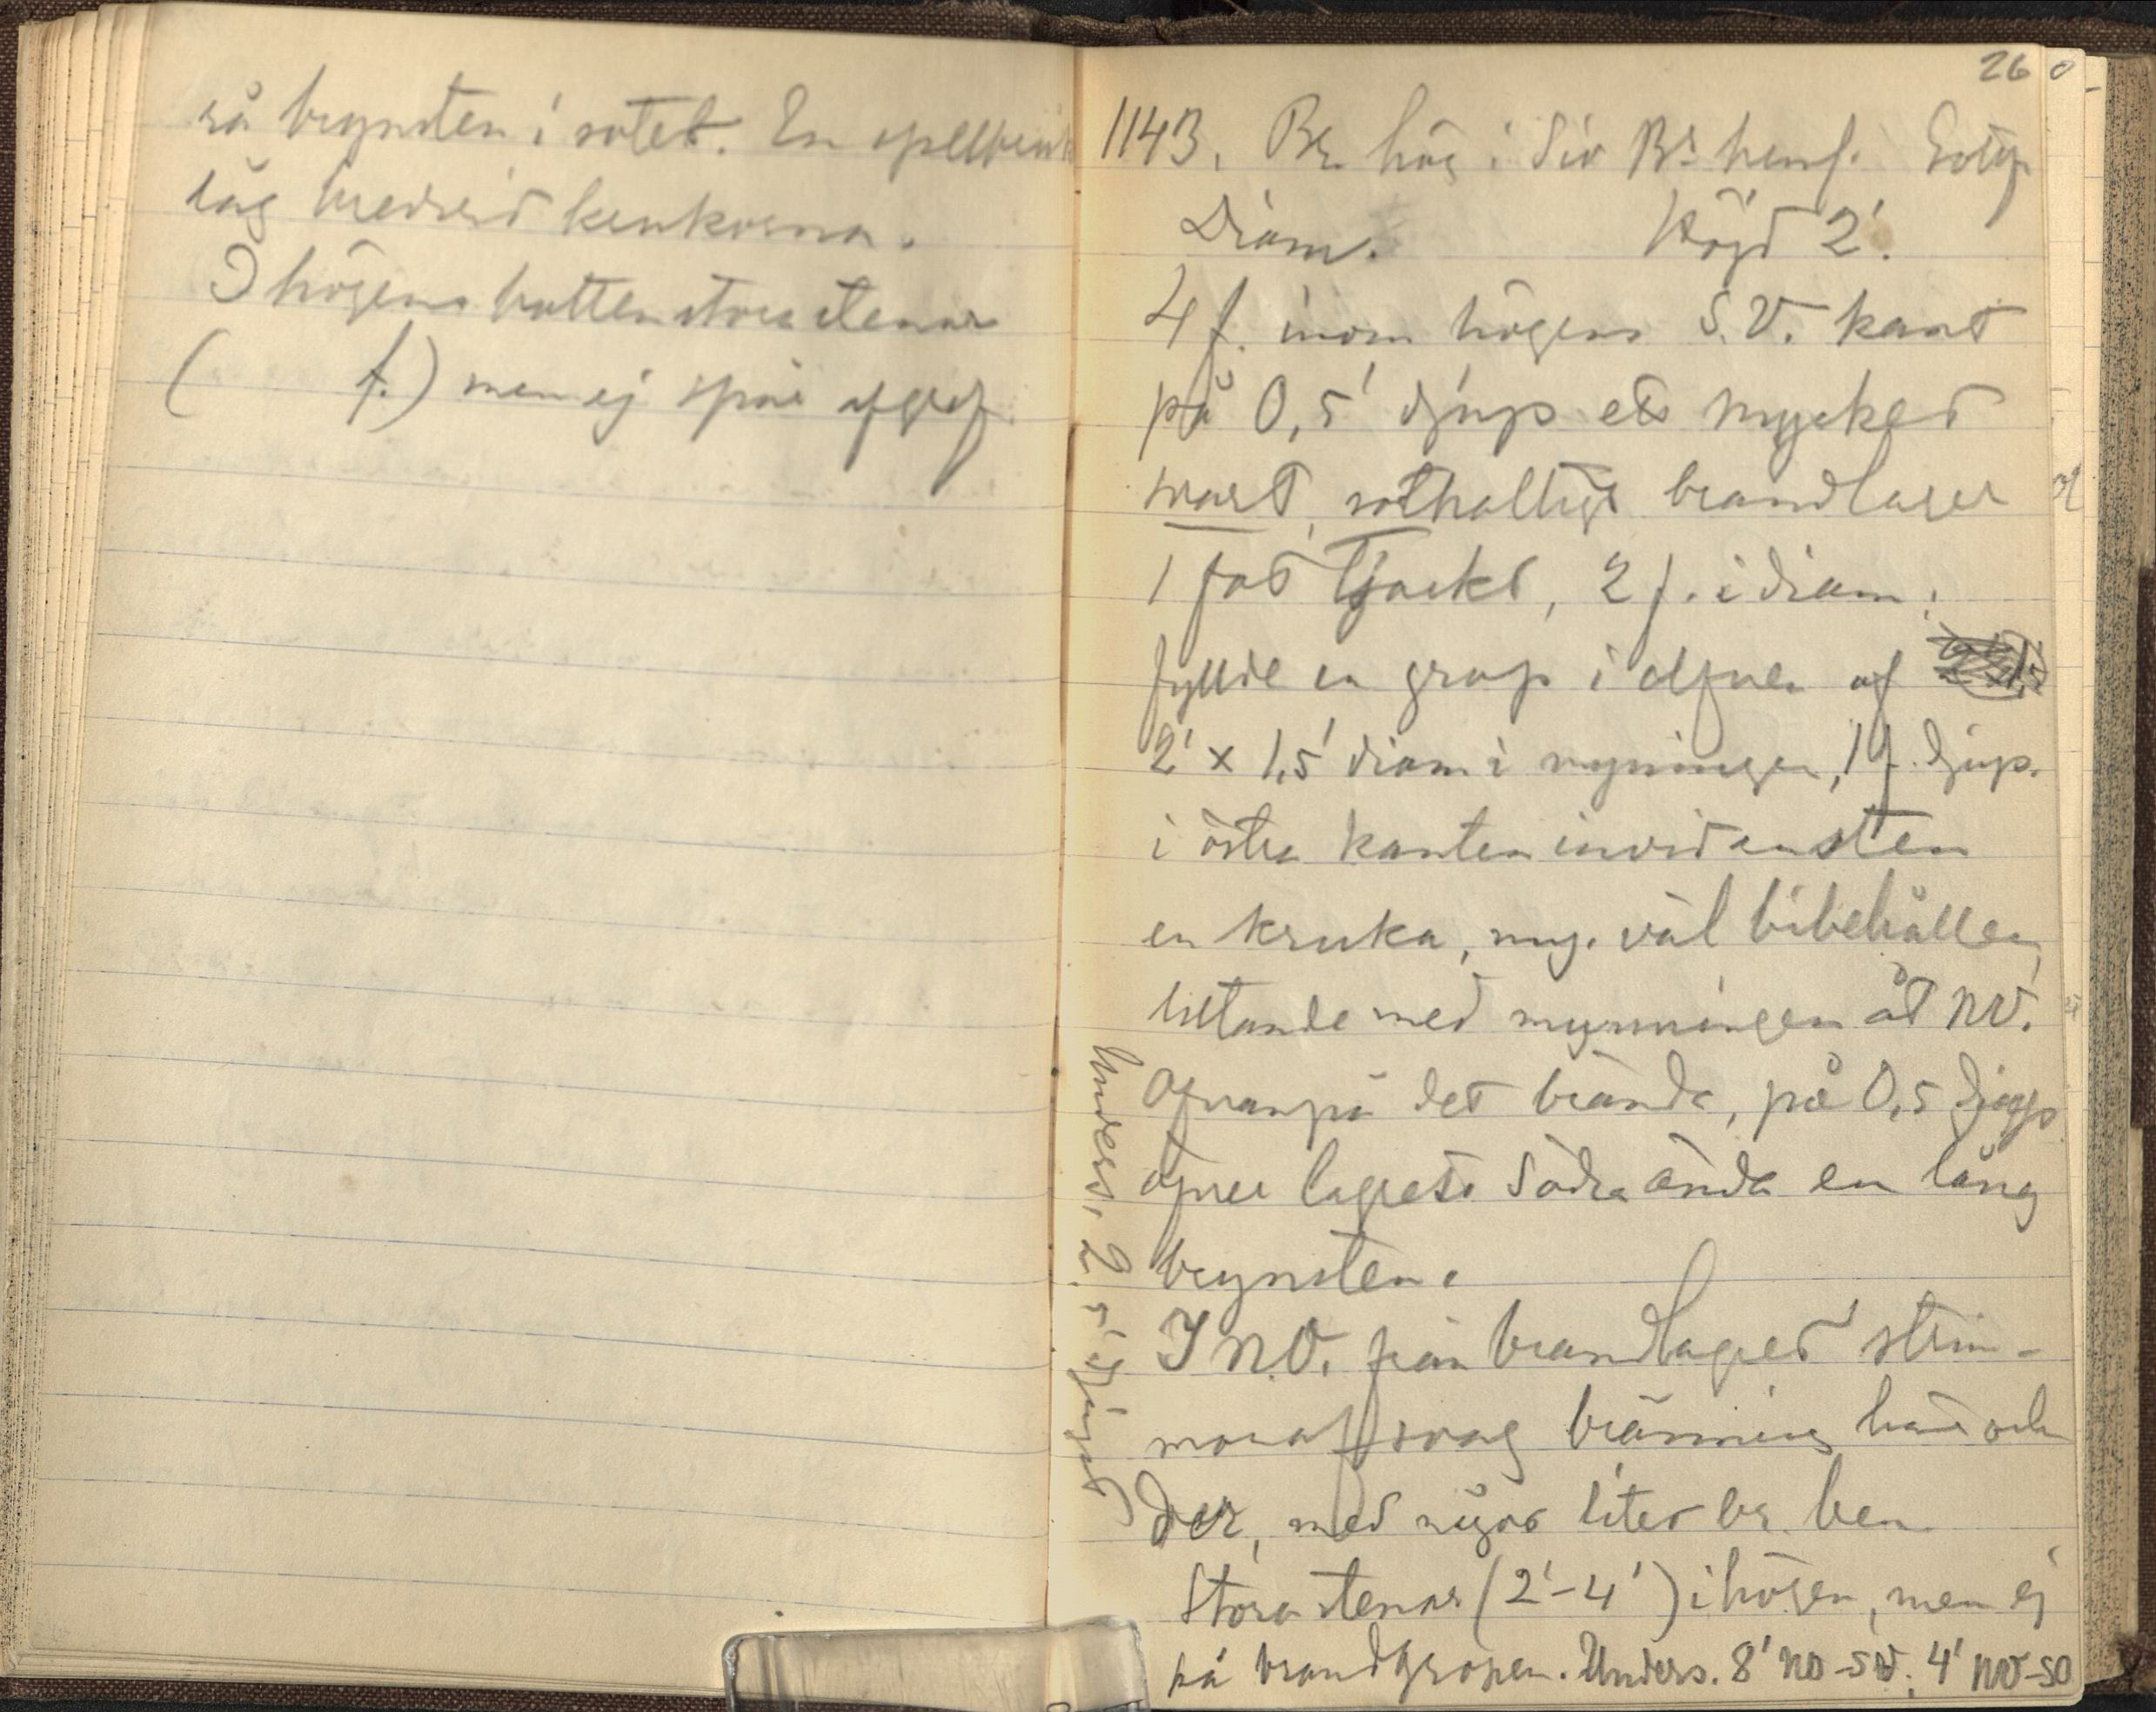 så brynsten i sotet. En spelbricka
låg bredvid krukorna.
I högens botten stora stenar
( f.) men ej spår af graf.
26
1143. Br. hög i Siv Bs hemf.
Diam. Höjd 2'.
4 f. inom högens S.V. kant
på 0,5' djup ett mycket
svart, sothaltigt brandlager
1 fot tjockt, 2 f. i diam.;
fyllde en grop i alfven af
2' x 1,5' diam i mynningen, 1 f. djup.
i östra kanten invid en sten
en kruka, myc. väl bibehållen,
lutande med mynningen åt NV.
Ofvanpå det brända, på 0,5 djup
öfver lagrets södra ända en lång
brynsten.
I N.O. från brandlagret strim-
mor af svag bränning här och
der, med något litet br. ben.
Stora stenar (2'-4') i högen, men ej
på brandgropen. Unders. 8' NO-SV, 4' NV-SO
Unders. 2,5' djupt